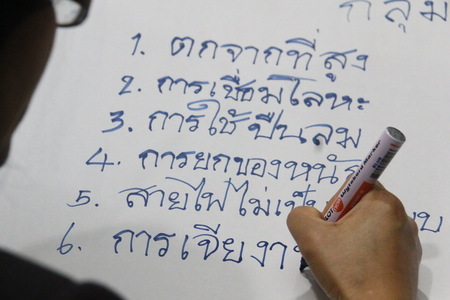 กลุ่ม
1. ตกจากที่สูง
2. การเชื่อมโลหะ
3. การใช้ปืนลม
4. การยกของหนัก
5. สายไฟไม่เป็น
6. การเจียงาน